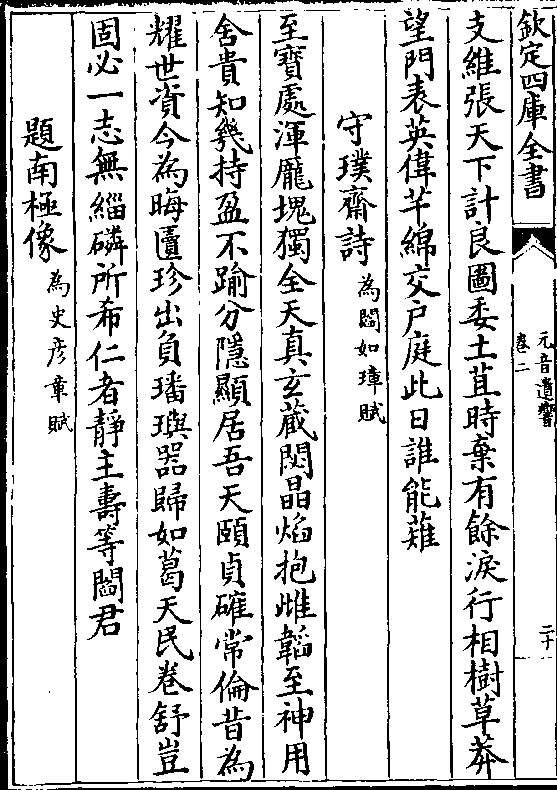 欽定四庫全書
元音遺響
卷二
二十
支維張天下計良圖委土苴時棄有餘淚行相樹草莽
望門表英偉芊綿交戶庭此日誰能薙
守璞齋詩為閻如璋賦
至寶處渾龎塊獨全天真玄蔵閟晶焰抱雌韜至神用
舍貴知幾持盈不踰分隱顯居吾天頤貞確常倫昔為
耀世資今為晦匵珍出負璠璵器歸如葛天民卷舒豈
固必一志無緇磷所希仁者靜主壽等閻君
題南極像為史彦章賦